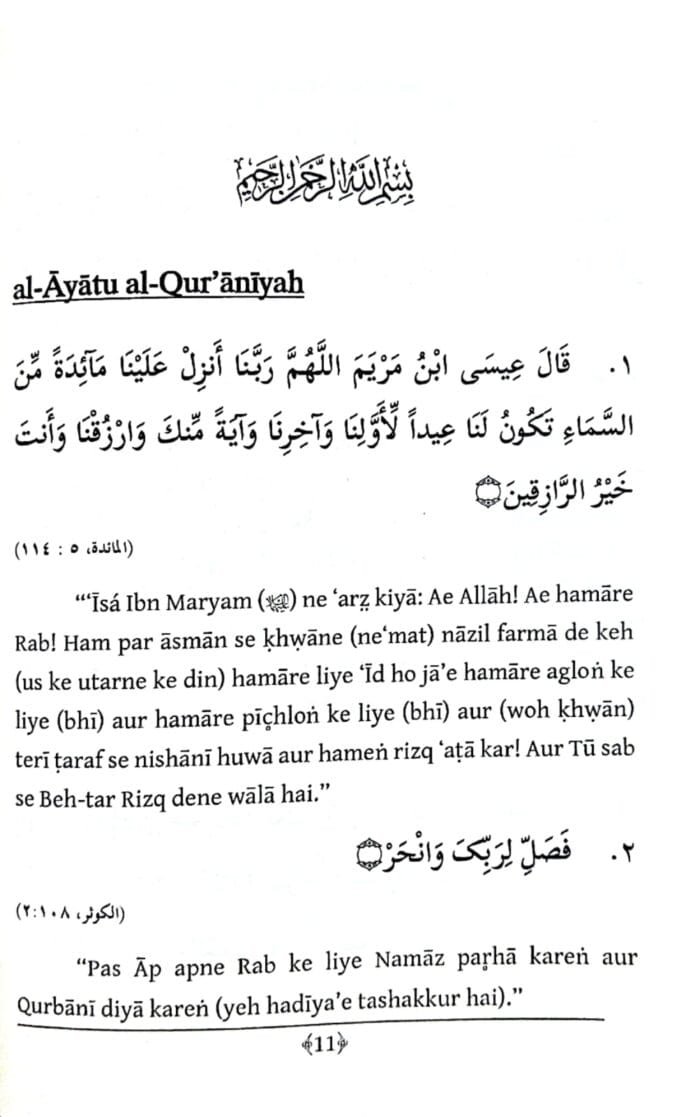 بِسْمِ اللهِ الرَّحْمٰنِ الرَّحِيْمِ
al-Āyātu al-Qur’ānīyah
١. قَالَ عِيسَى ابْنُ مَرْيَمَ اللَّهُمَّ رَبَّنَا أَنزِلْ عَلَيْنَا مَآئِدَةً مِّنَ
السَّمَاءِ تَكُونُ لَنَا عِيداً لِّأَوَّلِنَا وَآخِرِنَا وَآيَةً مِّنكَ وَارْزُقْنَا وَأَنتَ
خَيْرُ الرَّازِقِينَ۝
(المائدة، ٥ : ١١٤)
“‘Īsá Ibn Maryam (ﷺ) ne ‘arẓ kiyā: Ae Allāh! Ae hamāre
Rab! Ham par āsmān se ḳhwāne (ne‘mat) nāzil farmā de keh
(us ke utarne ke din) hamāre liye ‘Īd ho jā’e hamāre agloṅ ke
liye (bhī) aur hamāre pīçhloṅ ke liye (bhī) aur (woh ḳhwān)
terī ṭaraf se nishānī huwā aur hameṅ rizq ‘aṭā kar! Aur Tū sab
se Beh-tar Rizq dene wālā hai.”
٢. فَصَلِّ لِرَبِّکَ وَانْحَرْ۝
(الكوثر، ٢:١٠٨)
“Pas Āp apne Rab ke liye Namāz paŗhā kareṅ aur
Qurbānī diyā kareṅ (yeh hadīya’e tashakkur hai).”
﴾11﴿